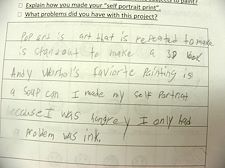 □ Explain how you made your "self portrait print".
□ What problems did you have with this project?
Pop art is art that is repeated to make
is stand out to make a 3D look
Andy Worhol's faviorite Painting is
a soup can I made my self Portrait
because I was hungrey I only had
a Problem was ink.